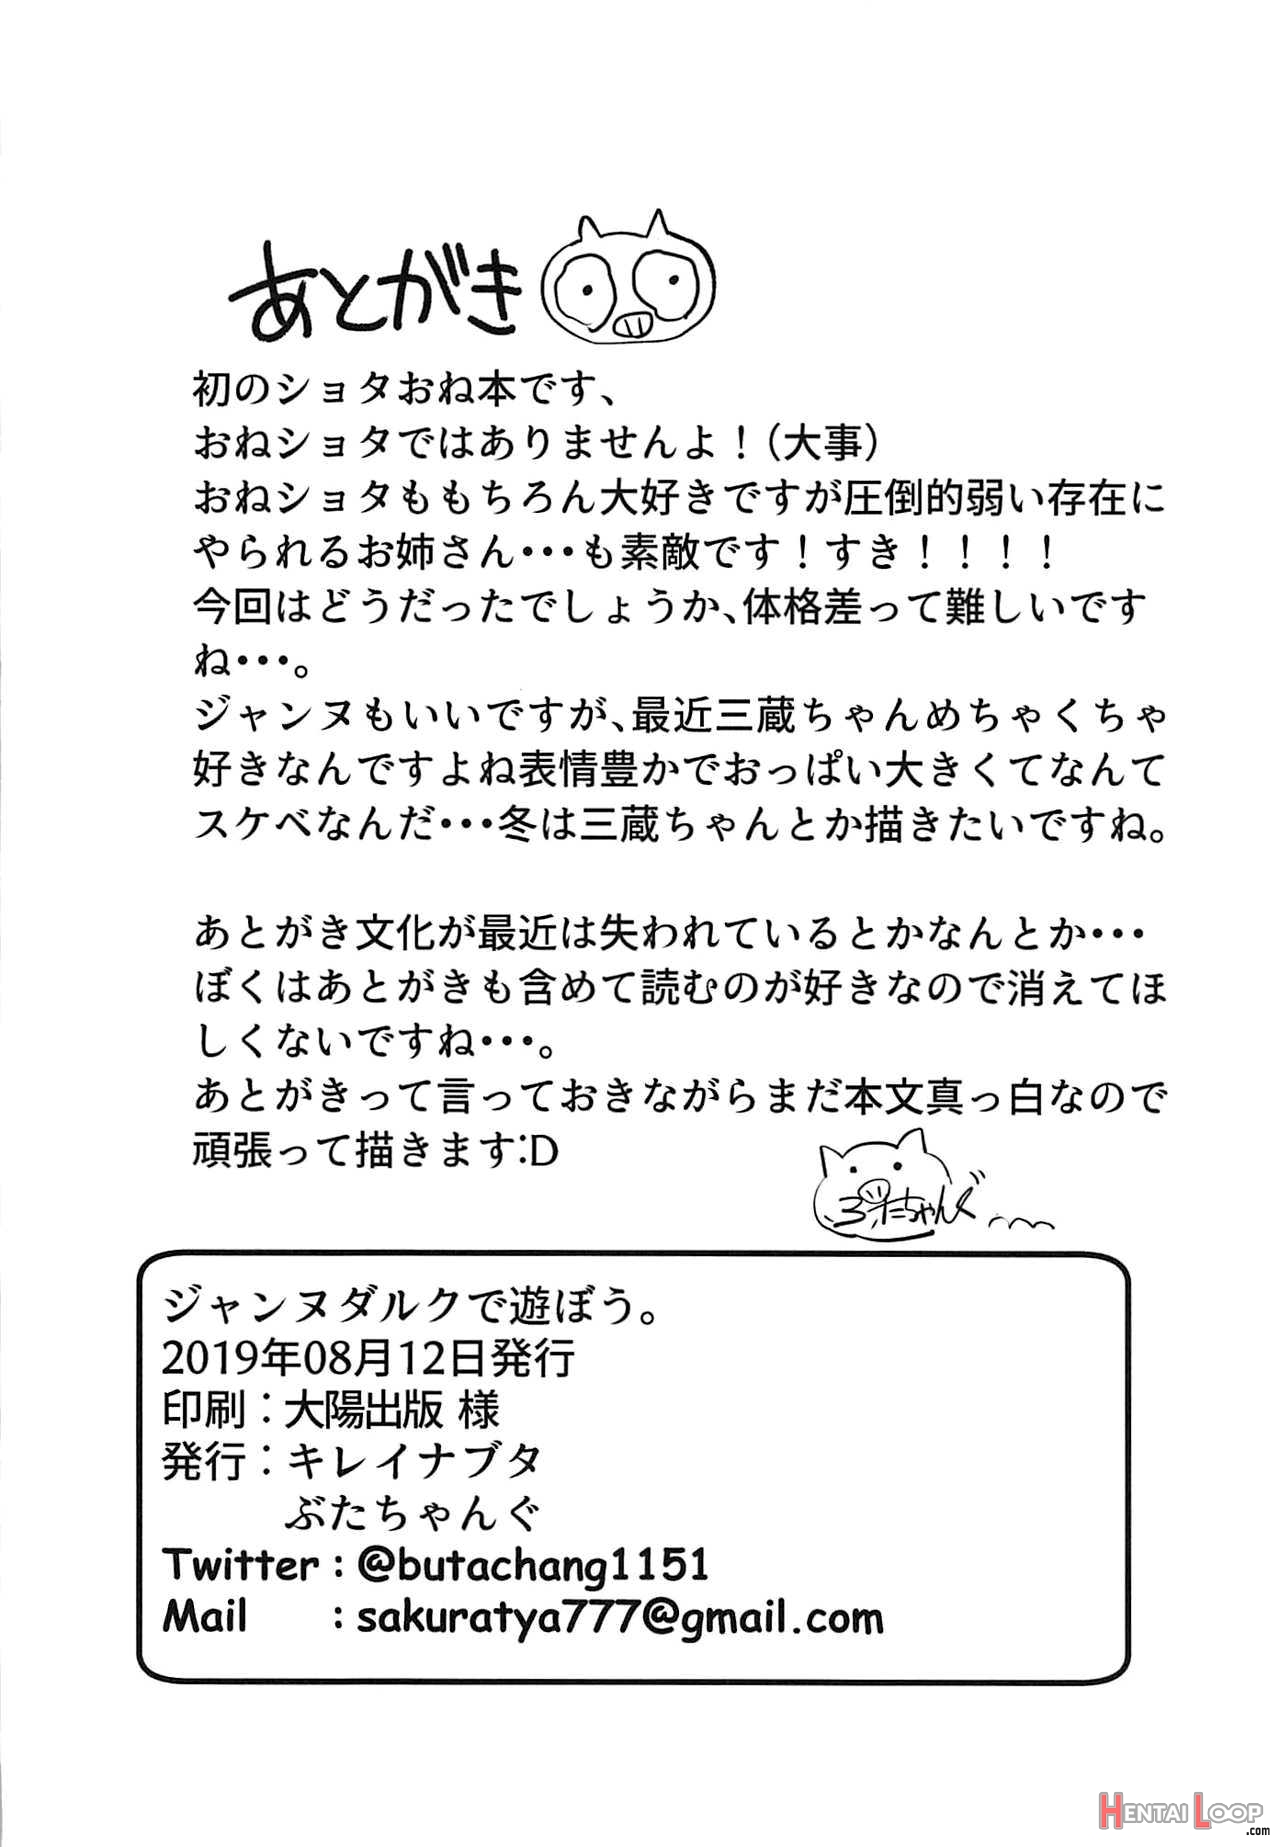 あとがき
初のショタおね本です、
おねショタではありませんよ！（大事）
おねショタももちろん大好きですが圧倒的弱い存在に
やられるお姉さん・・・も素敵です！すき！！！！
今回はどうだったでしょうか、体格差って難しいです
ね・・・。
ジャンヌもいいですが、最近三蔵ちゃんめちゃくちゃ
好きなんですよね表情豊かでおっぱい大きくてなんて
スケベなんだ・・・冬は三蔵ちゃんとか描きたいですね。
あとがき文化が最近は失われているとかなんとか・・・
ぼくはあとがきも含めて読むのが好きなので消えてほ
しくないですね・・・。
あとがきって言っておきながらまだ本文真っ白なので
頑張って描きます:D
ぶたちゃんぐ
ジャンヌダルクで遊ぼう。
2019年08月12日発行
印刷：大陽出版 様
発行：キレイナブタ
ぶたちゃんぐ
Twitter : @butachang1151
Mail : sakuratya777@gmail.com
HENTAI LOOP
.com